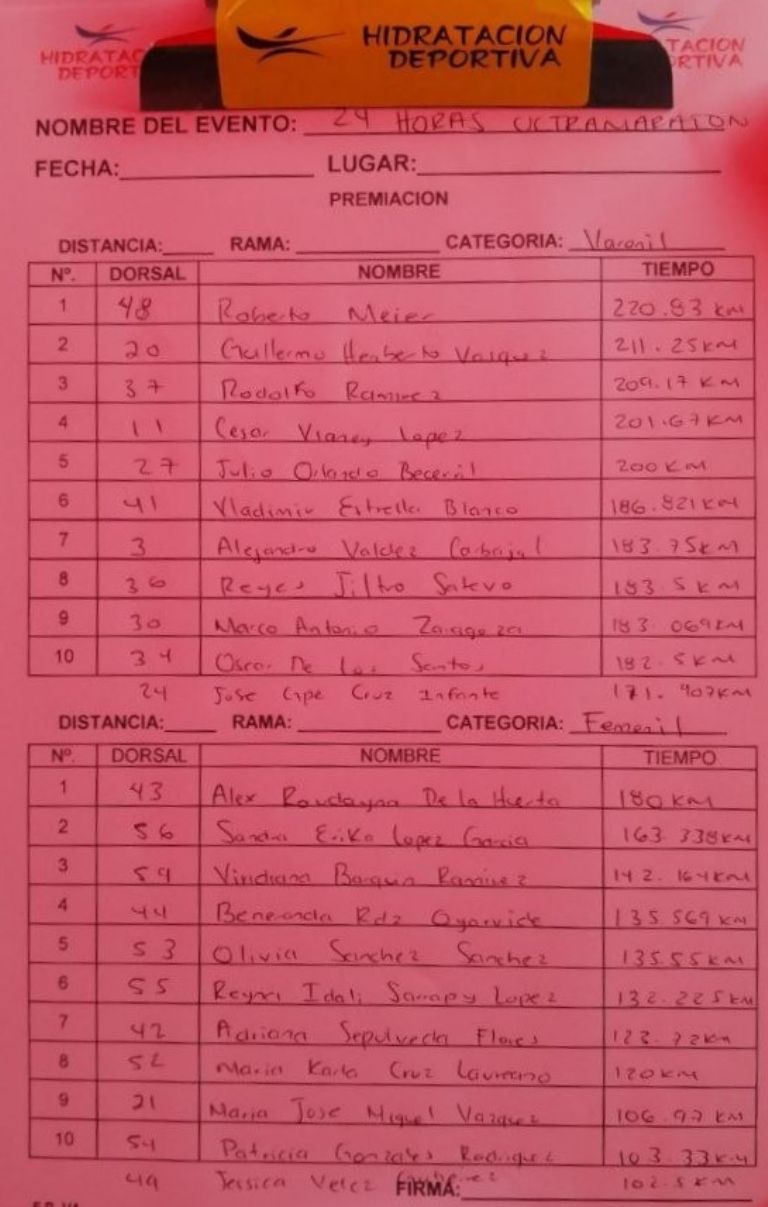 HIDRATACION
DEPORTIVA
HIDRATAC
DEPORT
TACION
RTIVA
NOMBRE DEL EVENTO: 24 HORAS ULTRAMARATON
FECHA: LUGAR:
PREMIACION
DISTANCIA: RAMA: CATEGORIA: Varonil
Nº. DORSAL NOMBRE TIEMPO
1 48 Roberto Meier 220.83 KM
2 20 Guillermo Heaberto Vasquez 211.25KM
3 37 Rodolfo Ramirez 209.17 KM
4 11 Cesar Vianey Lopez 201.67KM
5 27 Julio Orlando Becerril 200KM
6 41 Vladimir Estrella Blanco 186.821KM
7 3 Alejandro Valdez Carbajal 183.75KM
8 36 Reyes 183.5 KM
9 30 Marco Antonio Zaragoza 183.069KM
10 34 Oscar De Los Santos 182.5KM
24 Jose Cruz Infante 171.907KM
DISTANCIA: RAMA: CATEGORIA: Femenil
Nº. DORSAL NOMBRE TIEMPO
1 43 Alex Roudayna De la Huerta 180 KM
2 56 Sandra Erika Lopez Garcia 163.338KM
3 59 Viridiana Ramirez 142.164KM
4 44 Rdz Oyarvide 135.569 KM
5 53 Olivia Sanchez Sanchez 135.55KM
6 55 Idali Lopez 132.225KM
7 42 Adriana Sepulveda Flores KM
8 52 Maria Karla Cruz Laureano 120KM
9 21 Maria Jose Miguel Vazquez 106.97 KM
10 54 Patricia Gonzales Rodriguez 103.33KM
49 Jessica Velez FIRMA: 102.5KM